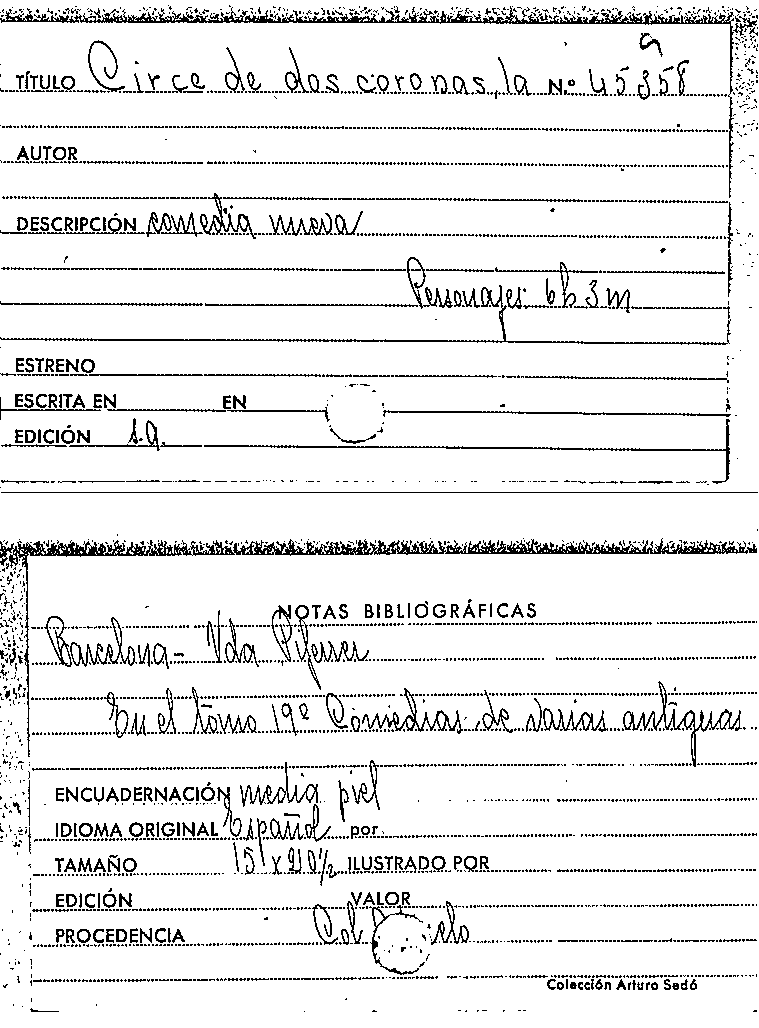 TÍTULO Circe de dos coronas, la N.º 45358
9
AUTOR
DESCRIPCIÓN comedia nueva
Personajes: 6h 3m
ESTRENO
ESCRITA EN EN
EDICIÓN s.a.
NOTAS BIBLIOGRÁFICAS
Barcelona - Vda Piferrer
En el tomo 19º Comedias de varias antiguas
ENCUADERNACIÓN media piel
IDIOMA ORIGINAL Español por
TAMAÑO 15 x 20½ ILUSTRADO POR
EDICIÓN VALOR
PROCEDENCIA Col
Colección Arturo Sedó